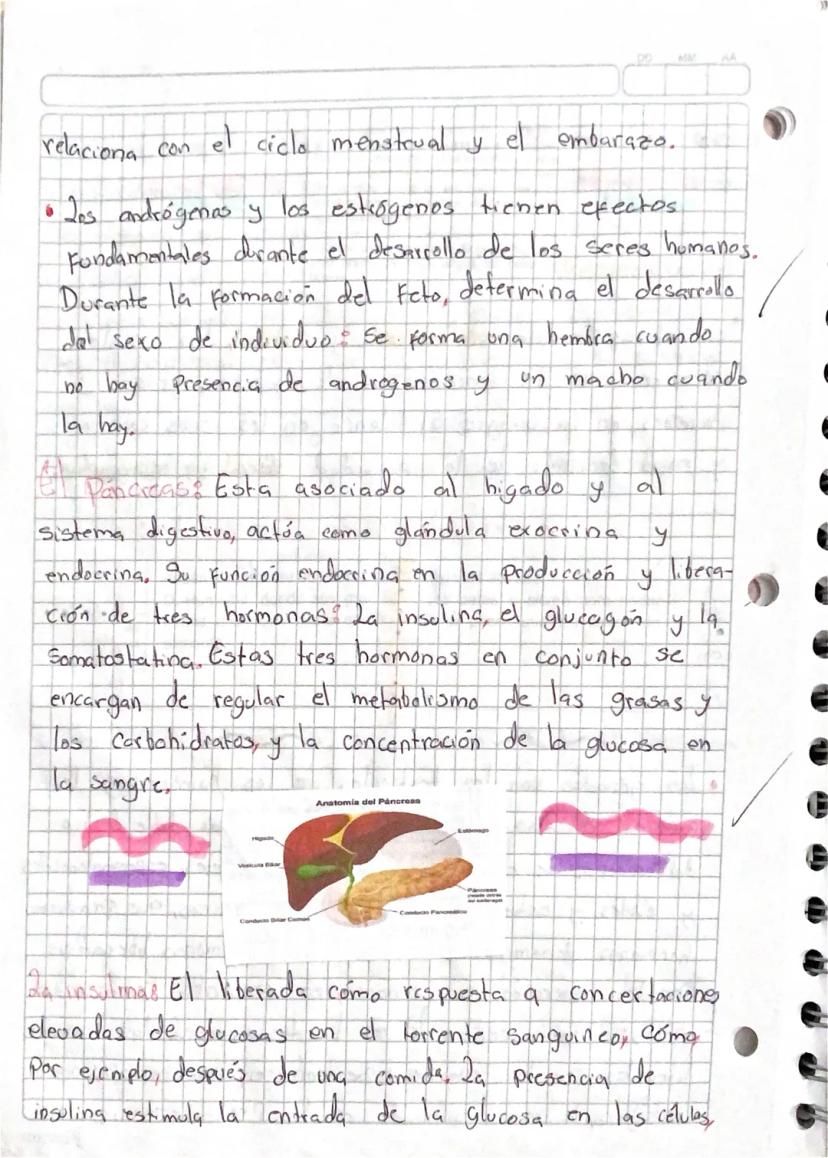 DD MM AA
relaciona con el ciclo menstrual y el embarazo.
• Los andrógenas y los estrógenos tienen efectos
Fundamentales durante el desarrollo de los seres humanos.
Durante la formación del Feto, determina el desarrollo
del sexo de individuo: Se forma una hembra cuando
no hay presencia de androgenos y un macho cuando
la hay.
El Páncreas: Esta asociado al higado y al
sistema digestivo, actúa como glándula exocrina y
endocrina. Su función endocrina en la producción y libera-
ción de tres hormonas: La insulina, el glucagón y la
Somatostatina. Estas tres hormonas en conjunto se
encargan de regular el metabolismo de las grasas y
los carbohidratos, y la concentración de la glucosa en
la sangre.
Anatomía del Páncreas
Hígado
Estómago
Vesícula Biliar
Páncreas
Conducto Biliar Común
Conducto Pancreático
La insulina: El liberada cómo respuesta a concertaciones
elevadas de glucosas en el torrente sanguineo, cómo
por ejemplo, después de una comida. La presencia de
insulina estimula la entrada de la glucosa en las células,